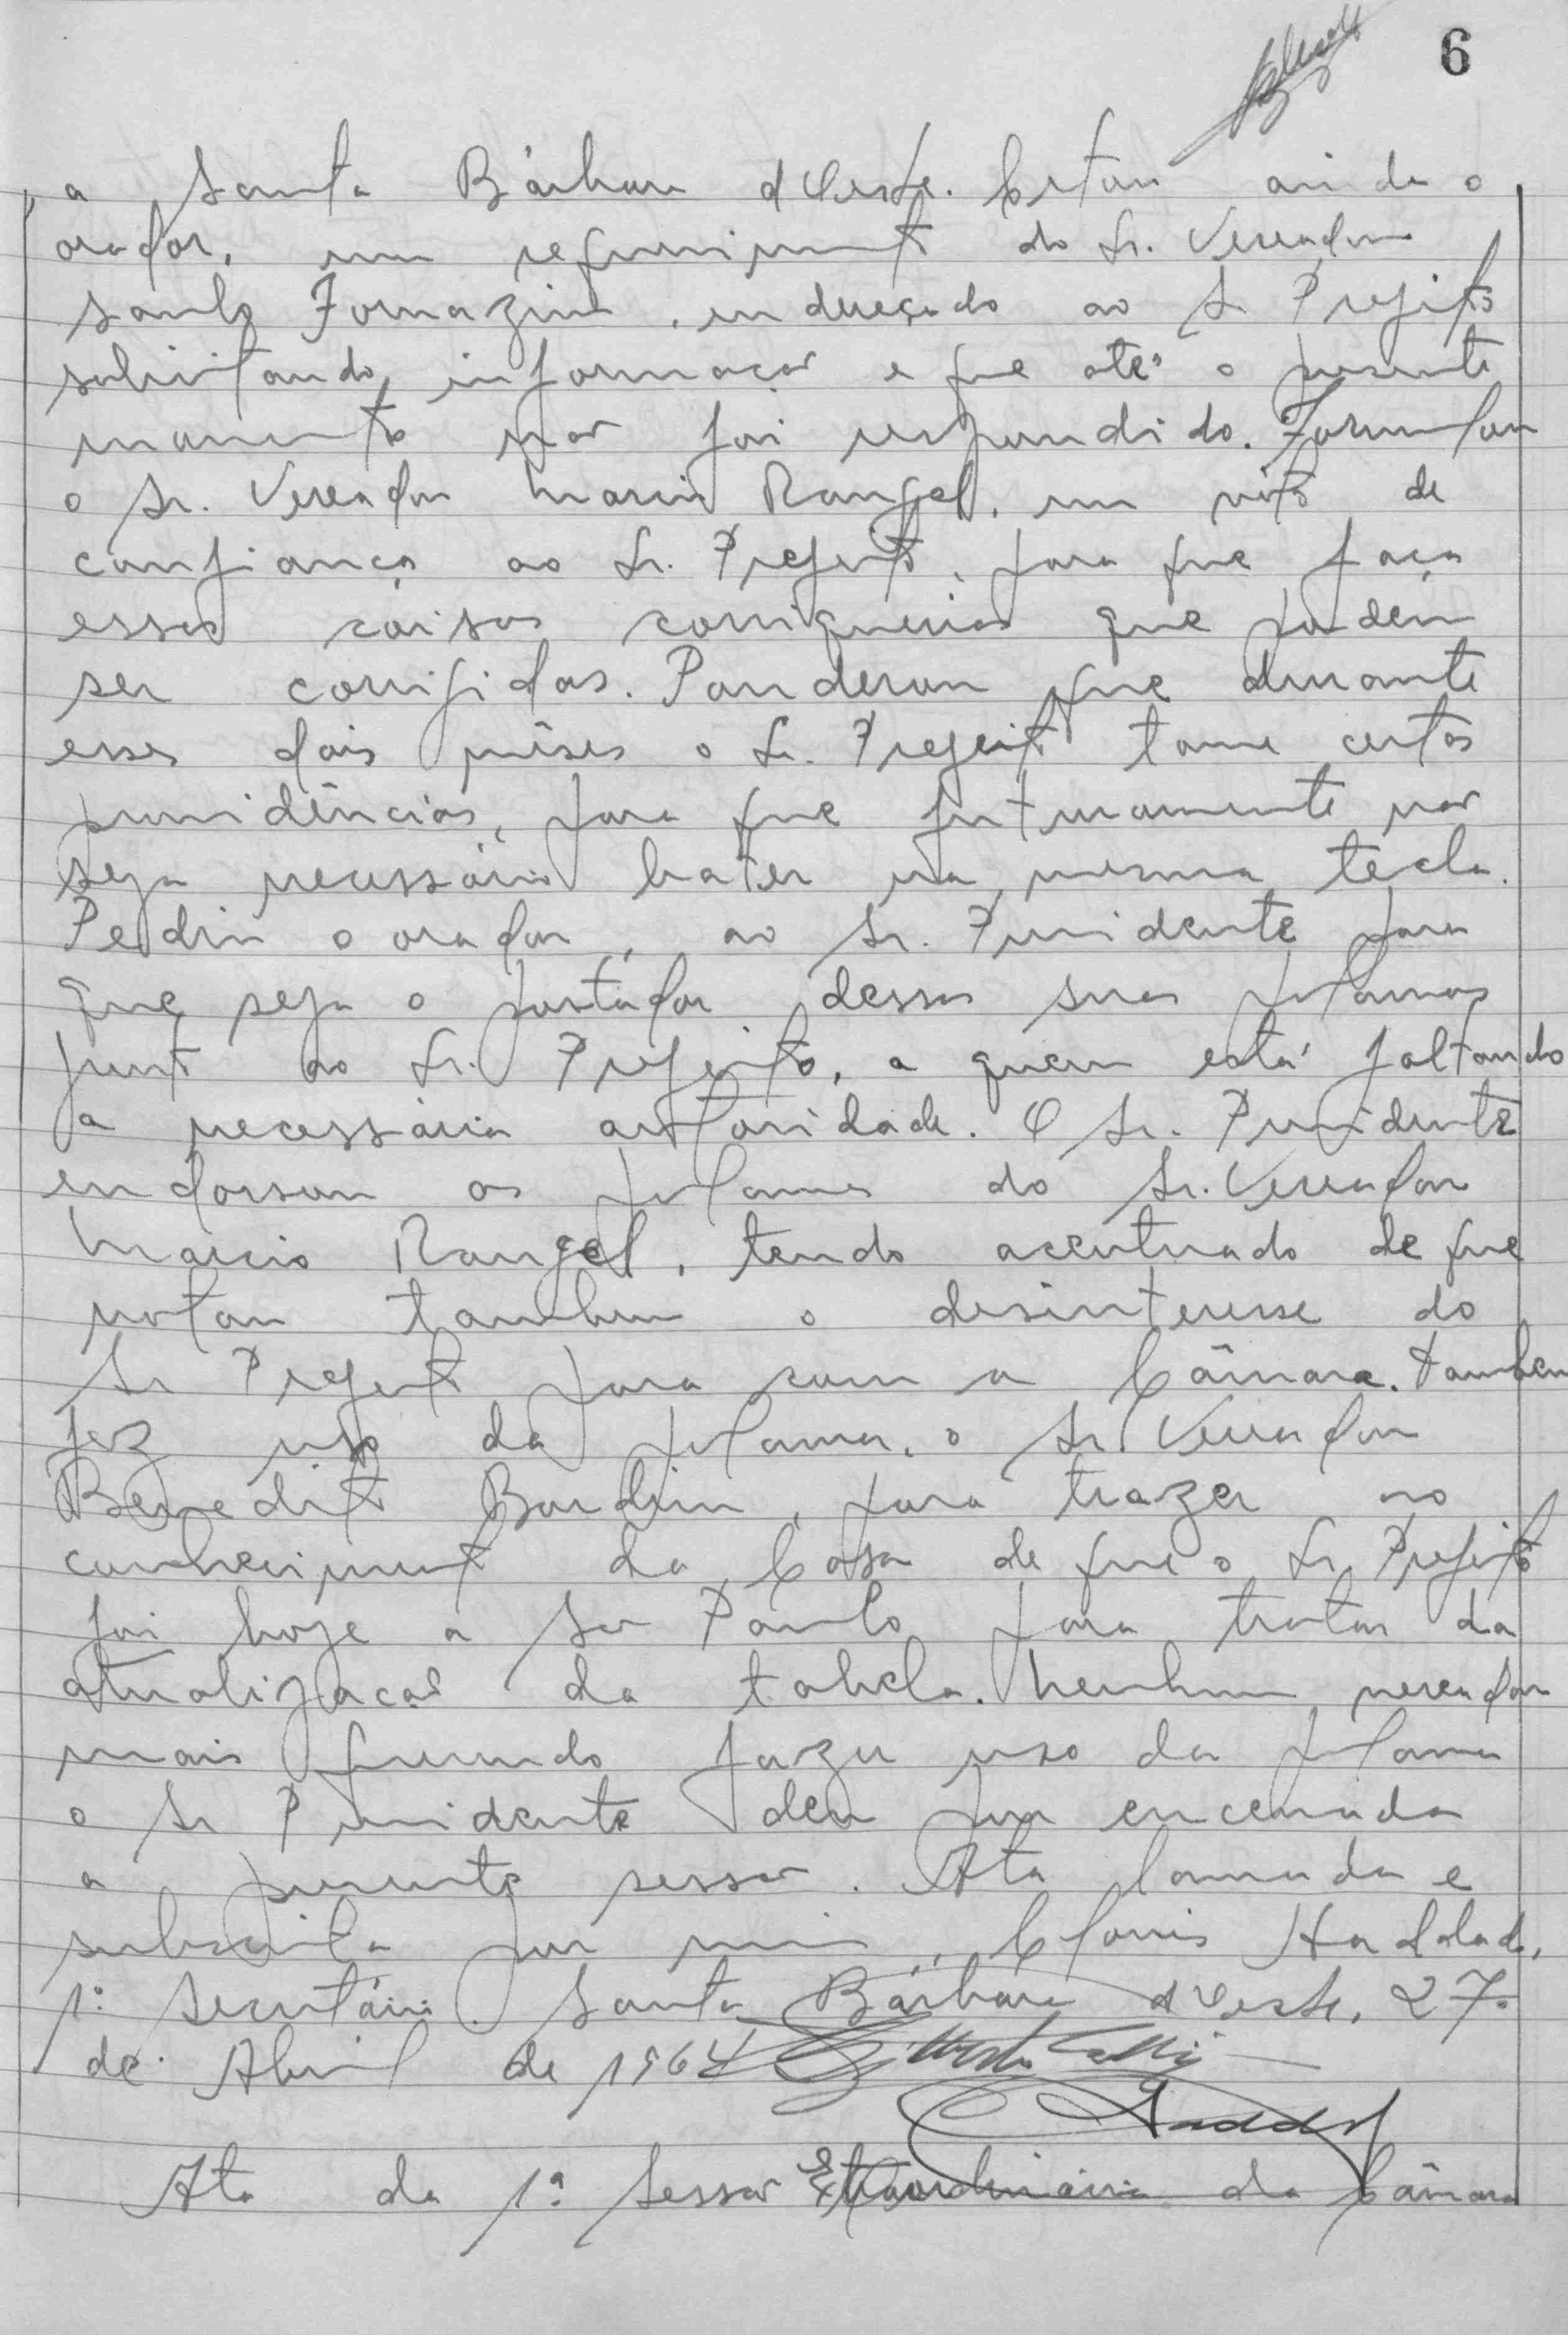 6
a Santa Bárbara d'Oeste. Citou ainda o
orador, um requerimento do Sr. Vereador
Saulo Fornazin, endereçado ao Sr Prefeito
solicitando informação e que até o presente
momento não foi respondido. Formulou
o Sr. Vereador Marcio Rangel, um voto de
confiança ao Sr. Prefeito, para que faça
essas coisas corriqueiras que podem
ser corrigidas. Ponderou que durante
esses dois mêses o Sr. Prefeito tome certas
providências, para que futuramente não
seja necessário bater na mesma tecla.
Pediu o orador, ao Sr. Presidente para
que seja o portador dessas suas palavras
junto ao Sr. Prefeito, a quem está faltando
a necessária autoridade. O Sr. Presidente
endossou as palavras do Sr. Vereador
Marcio Rangel, tendo acentuado de que
notou tambem o desinteresse do
Sr Prefeito para com a Câmara. Tambem
fez uso da palavra, o Sr. Vereador
Benedito Bardin, para trazer ao
conhecimento da Casa de que o Sr. Prefeito
foi hoje a São Paulo para tratar da
atualização da tabela. Nenhum vereador
mais querendo fazer uso da palavra
o Sr Presidente deu por encerrada
a presente sessão. Ata lavrada e
subscrita por mim, Clovis Haddad,
1º Secretário. Santa Bárbara d'Oeste, 27
de Abril de 1964
Ata da 1ª Sessão Extraordinária da Câmara